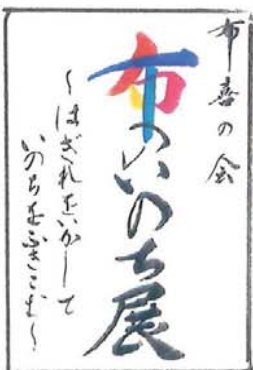 布喜の会
布のいのち展
～はぎれをいかして
いのちをふきこむ～